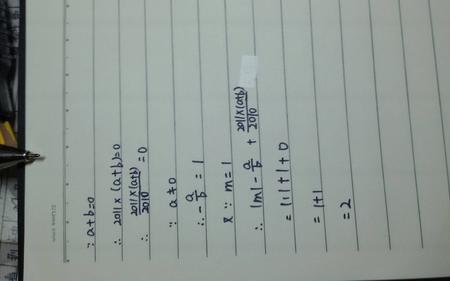 ∵ a+b=0
∴ 2011×(a+b)=0
∴ 2011×(a+b)/2010 =0
∵ a≠0
∴ -a/b = 1
又∵ m=1
∴ |m| - a/b + 2011×(a+b)/2010
= |1|+1+0
= 1+1
=2